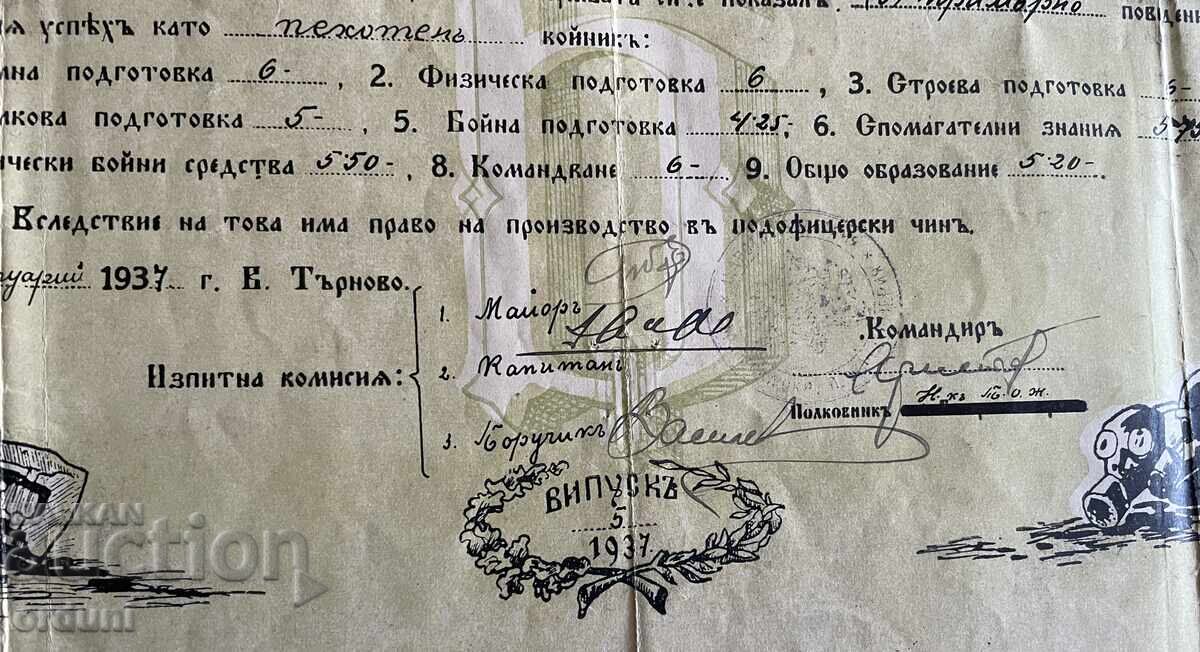 показалъ примѣрно поведени
я успѣхъ като пехотенъ войникъ:
лна подготовка 6- , 2. Физическа подготовка 6 , 3. Строева подготовка 6-
лкова подготовка 5- , 5. Бойна подготовка 4·25; 6. Спомагателни знания 5·75
ически бойни средства 5·50- , 8. Командване 6- 9. Общо образование 5·20-.
Вследствие на това има право на производство въ подофицерски чин.
ануарий 1937 г. В. Търново.
1. Майоръ
.Командиръ
Изпитна комисия:
2. Капитанъ
Полковникъ Н-къ Т.О.Ж.
3. Поручикъ Василев
ВИПУСКЪ
5
1937.
BALKAN
auction
orduni